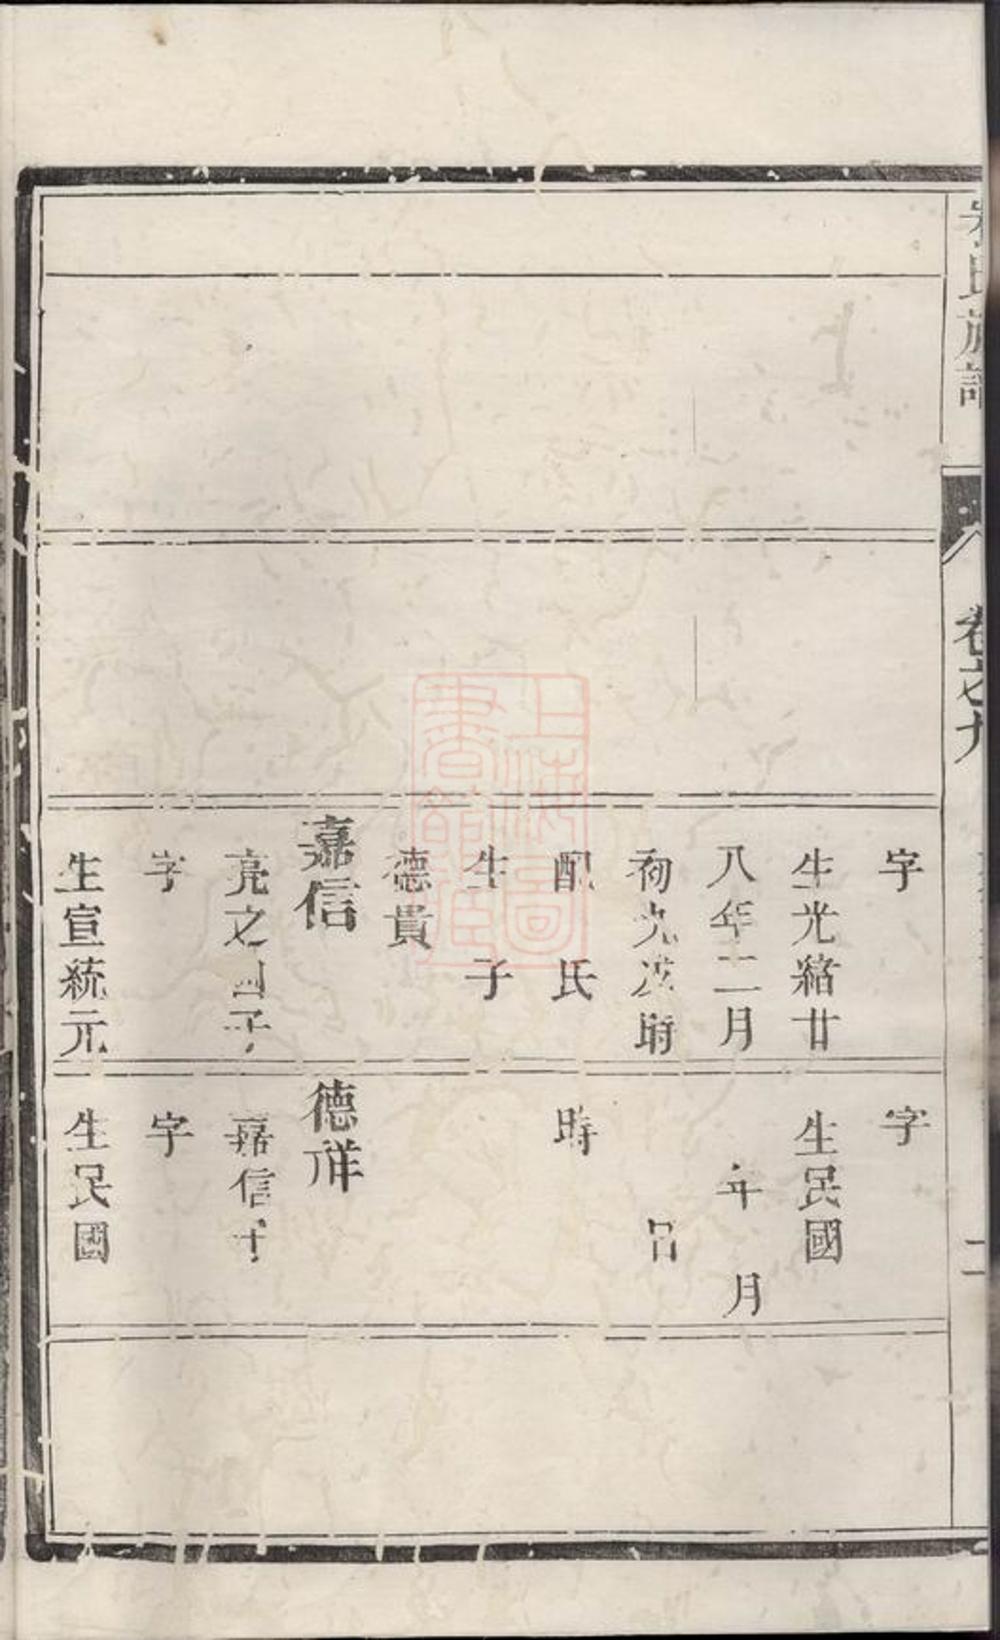 氏族譜
卷之九
二
字
生光緒廿
八年二月
初九戌時
配　氏
生　子
德貴
嘉信
亮之四子
字
生宣統元
字
生民國
年　月
日
時
德祥
嘉信子
字
生民國
上海圖書館藏